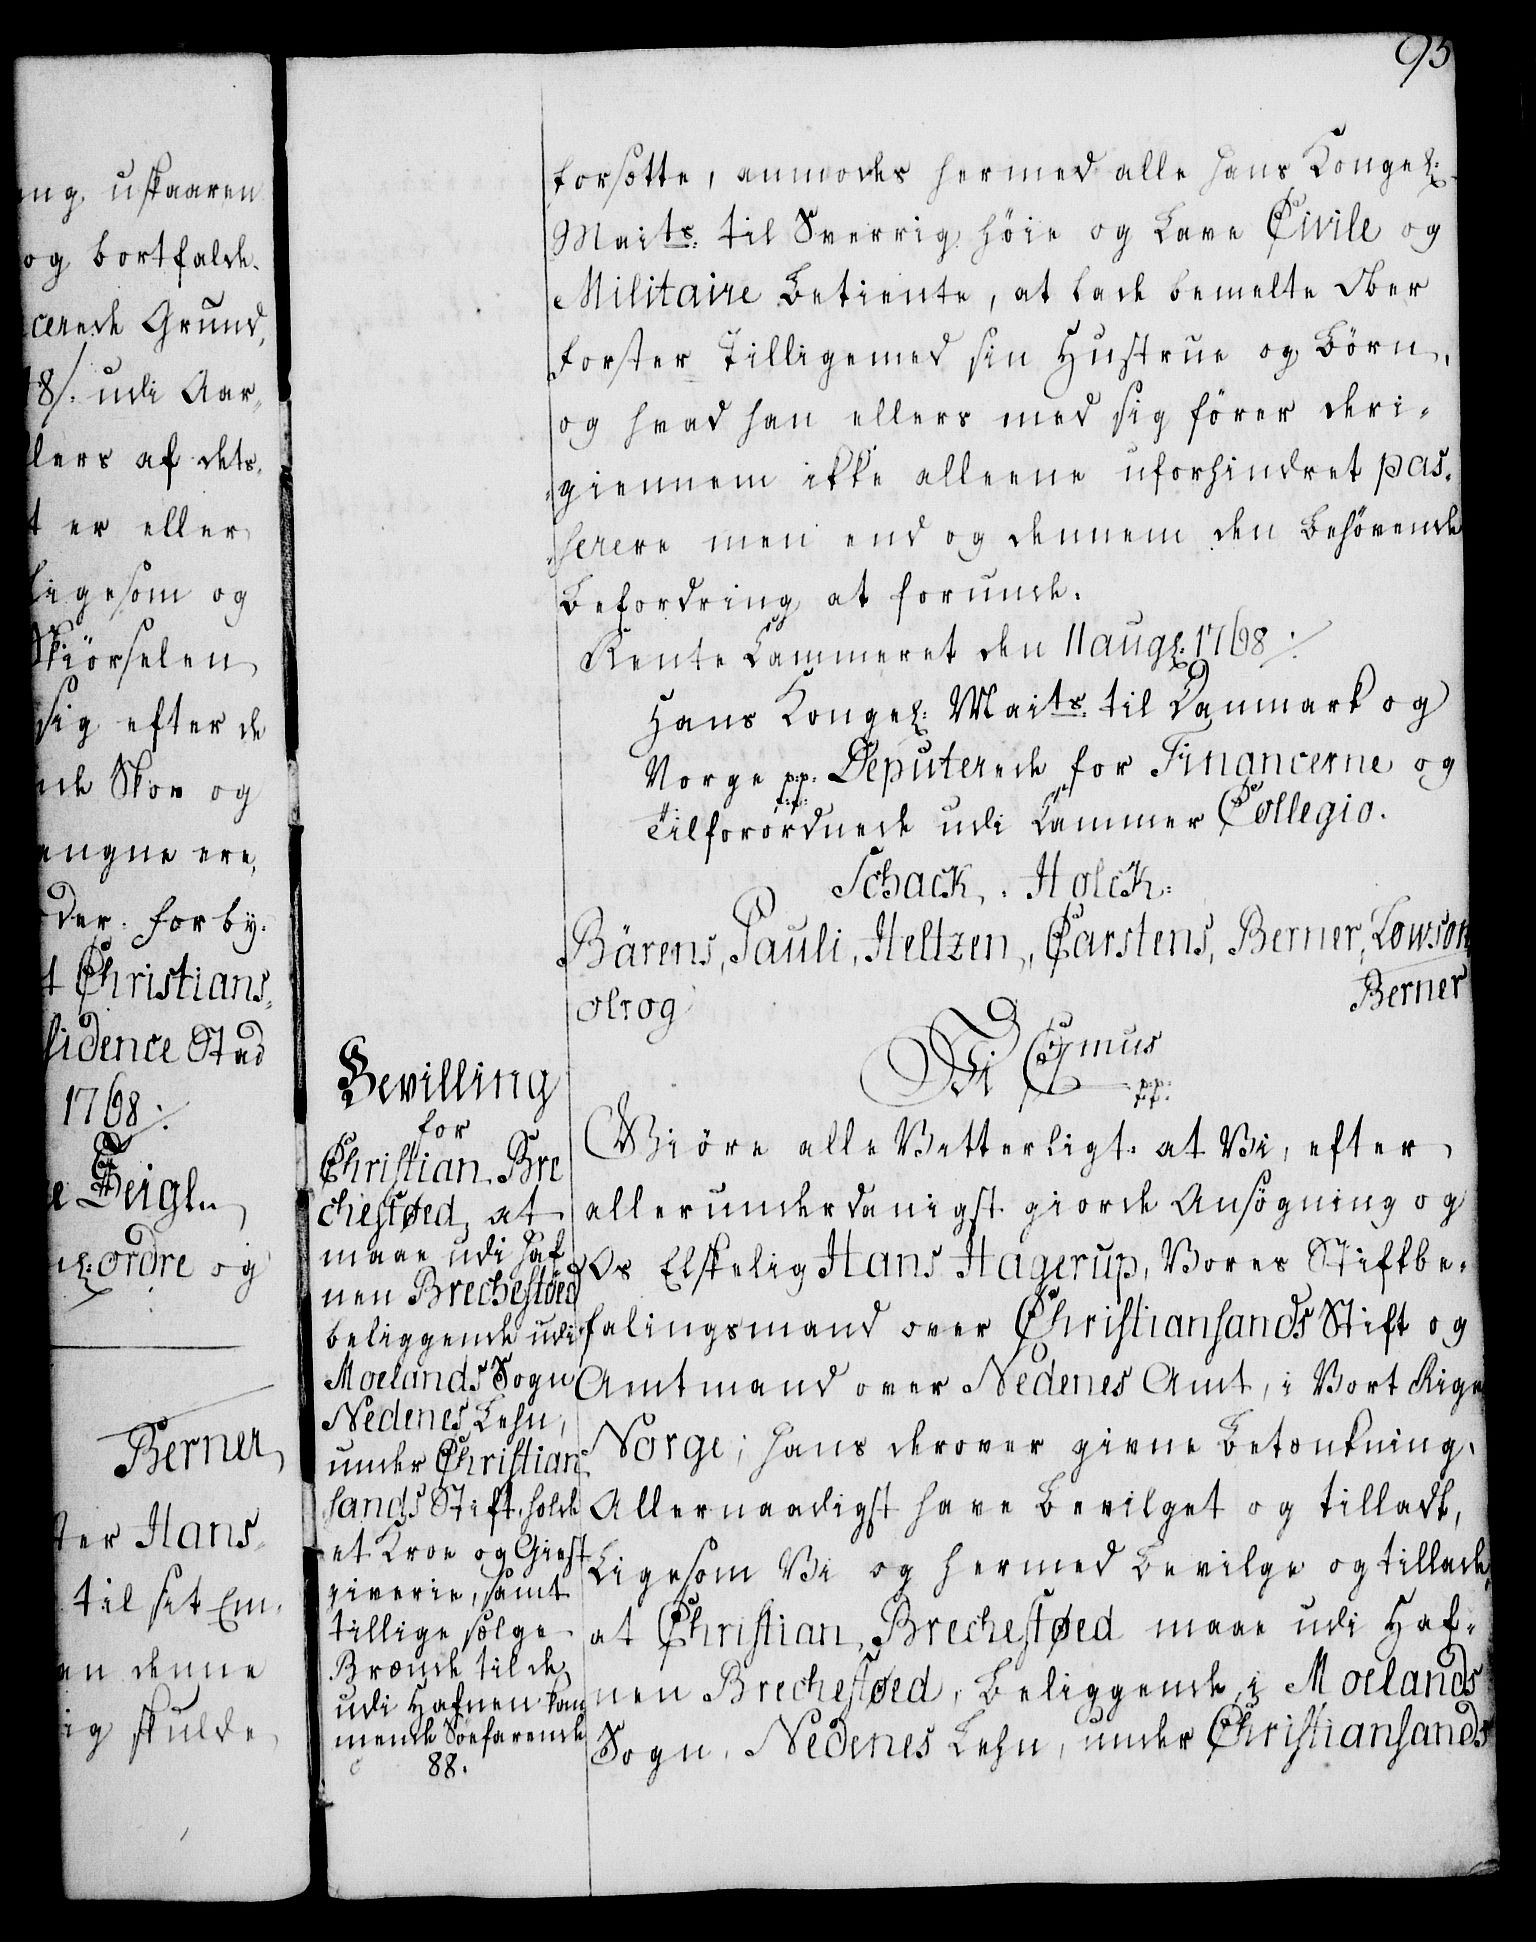 95
ing, uskaaren
og bortfalde.
cerede Grund,
18/. udi Aar,
llers af dets,
t er eller
ligesom og
Skiörselen
sig efter de
nde Skov og
angne ere,
der. forby.
t Christians,
sidence Stad
1768 ./.
e Teigln
ordre og
Berner
ter Hans,
til sit Em,
an denne
ig skulde
forsötte, anmodes hermed alle hans Kongel:
Maits: til Sverrig höie og Lave Civile og
Militaire Betiente, at lade bemelte Ober
forster Tilligemed sin Hustrue og Börn,
og hvad han ellers med sig förer deri,
giennem ikke alleene uforhindret pas,
serere men end og dennem den Behövende
Befordring at forunde.
Rente Cammeret den 11 augl: 1768 ./.
Hans Kongel: Maits: til Danmark og
Norge p:p: Deputerede for Financerne og
Tilforordnede udi Cammer Collegio.
Schack, Holck:
Bärens, Pauli, Heltzen, Carstens, Berner, Lowson
olrog
Berner
Bevilling
for
Christian Bre
chestøed, at
maae udi Haf
nen Brechestöed
beliggende udi
Moelands Sogn
Nedenes Lehn,
under Christian
sands Stift, holde
et Kroe og Giest
giverie, samt
tillige sælge
Brænde til de
udi Hafnen kom
mende Soefarende
88.
Vi C7mus
p:p:
Giöre alle Vitterligt: at Vi, efter
allerunderdanigst giorde Ansögning og
Os Elskelig Hans Hagerup, Vores Stiftbe,
falingsmand over Christiansands Stift og
Amtmand over Nedenes Amt, i Vort Rige
Norge, hans derover givne Betænkning,
Allernaadigst have Bevilget og tilladt,
Ligesom Vi og hermed Bevilge og tillade,
at Christian Brechestøed maae udi Haf,
nen Brechestøed, Beliggende i Moelands
Sogn, Nedenes Lehn, under Christiansands